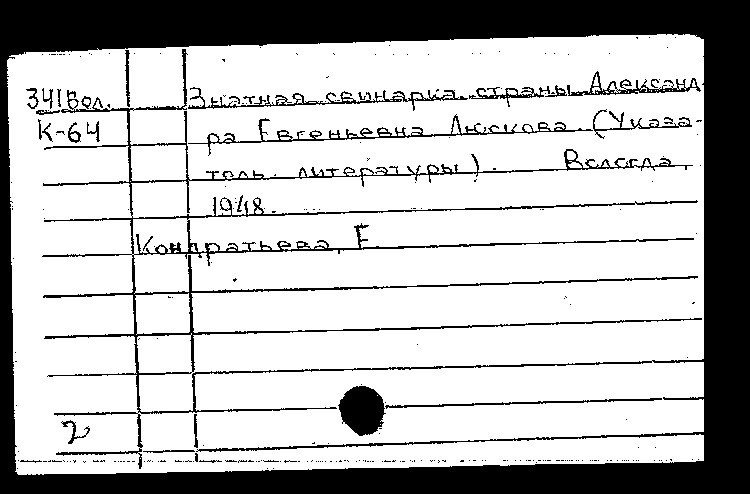 341Вол. Знатная свинарка страны Александ-
К-64 ра Евгеньевна Люскова. (Указа-
тель литературы). Вологда,
1948.
Кондратьева, Е.
2